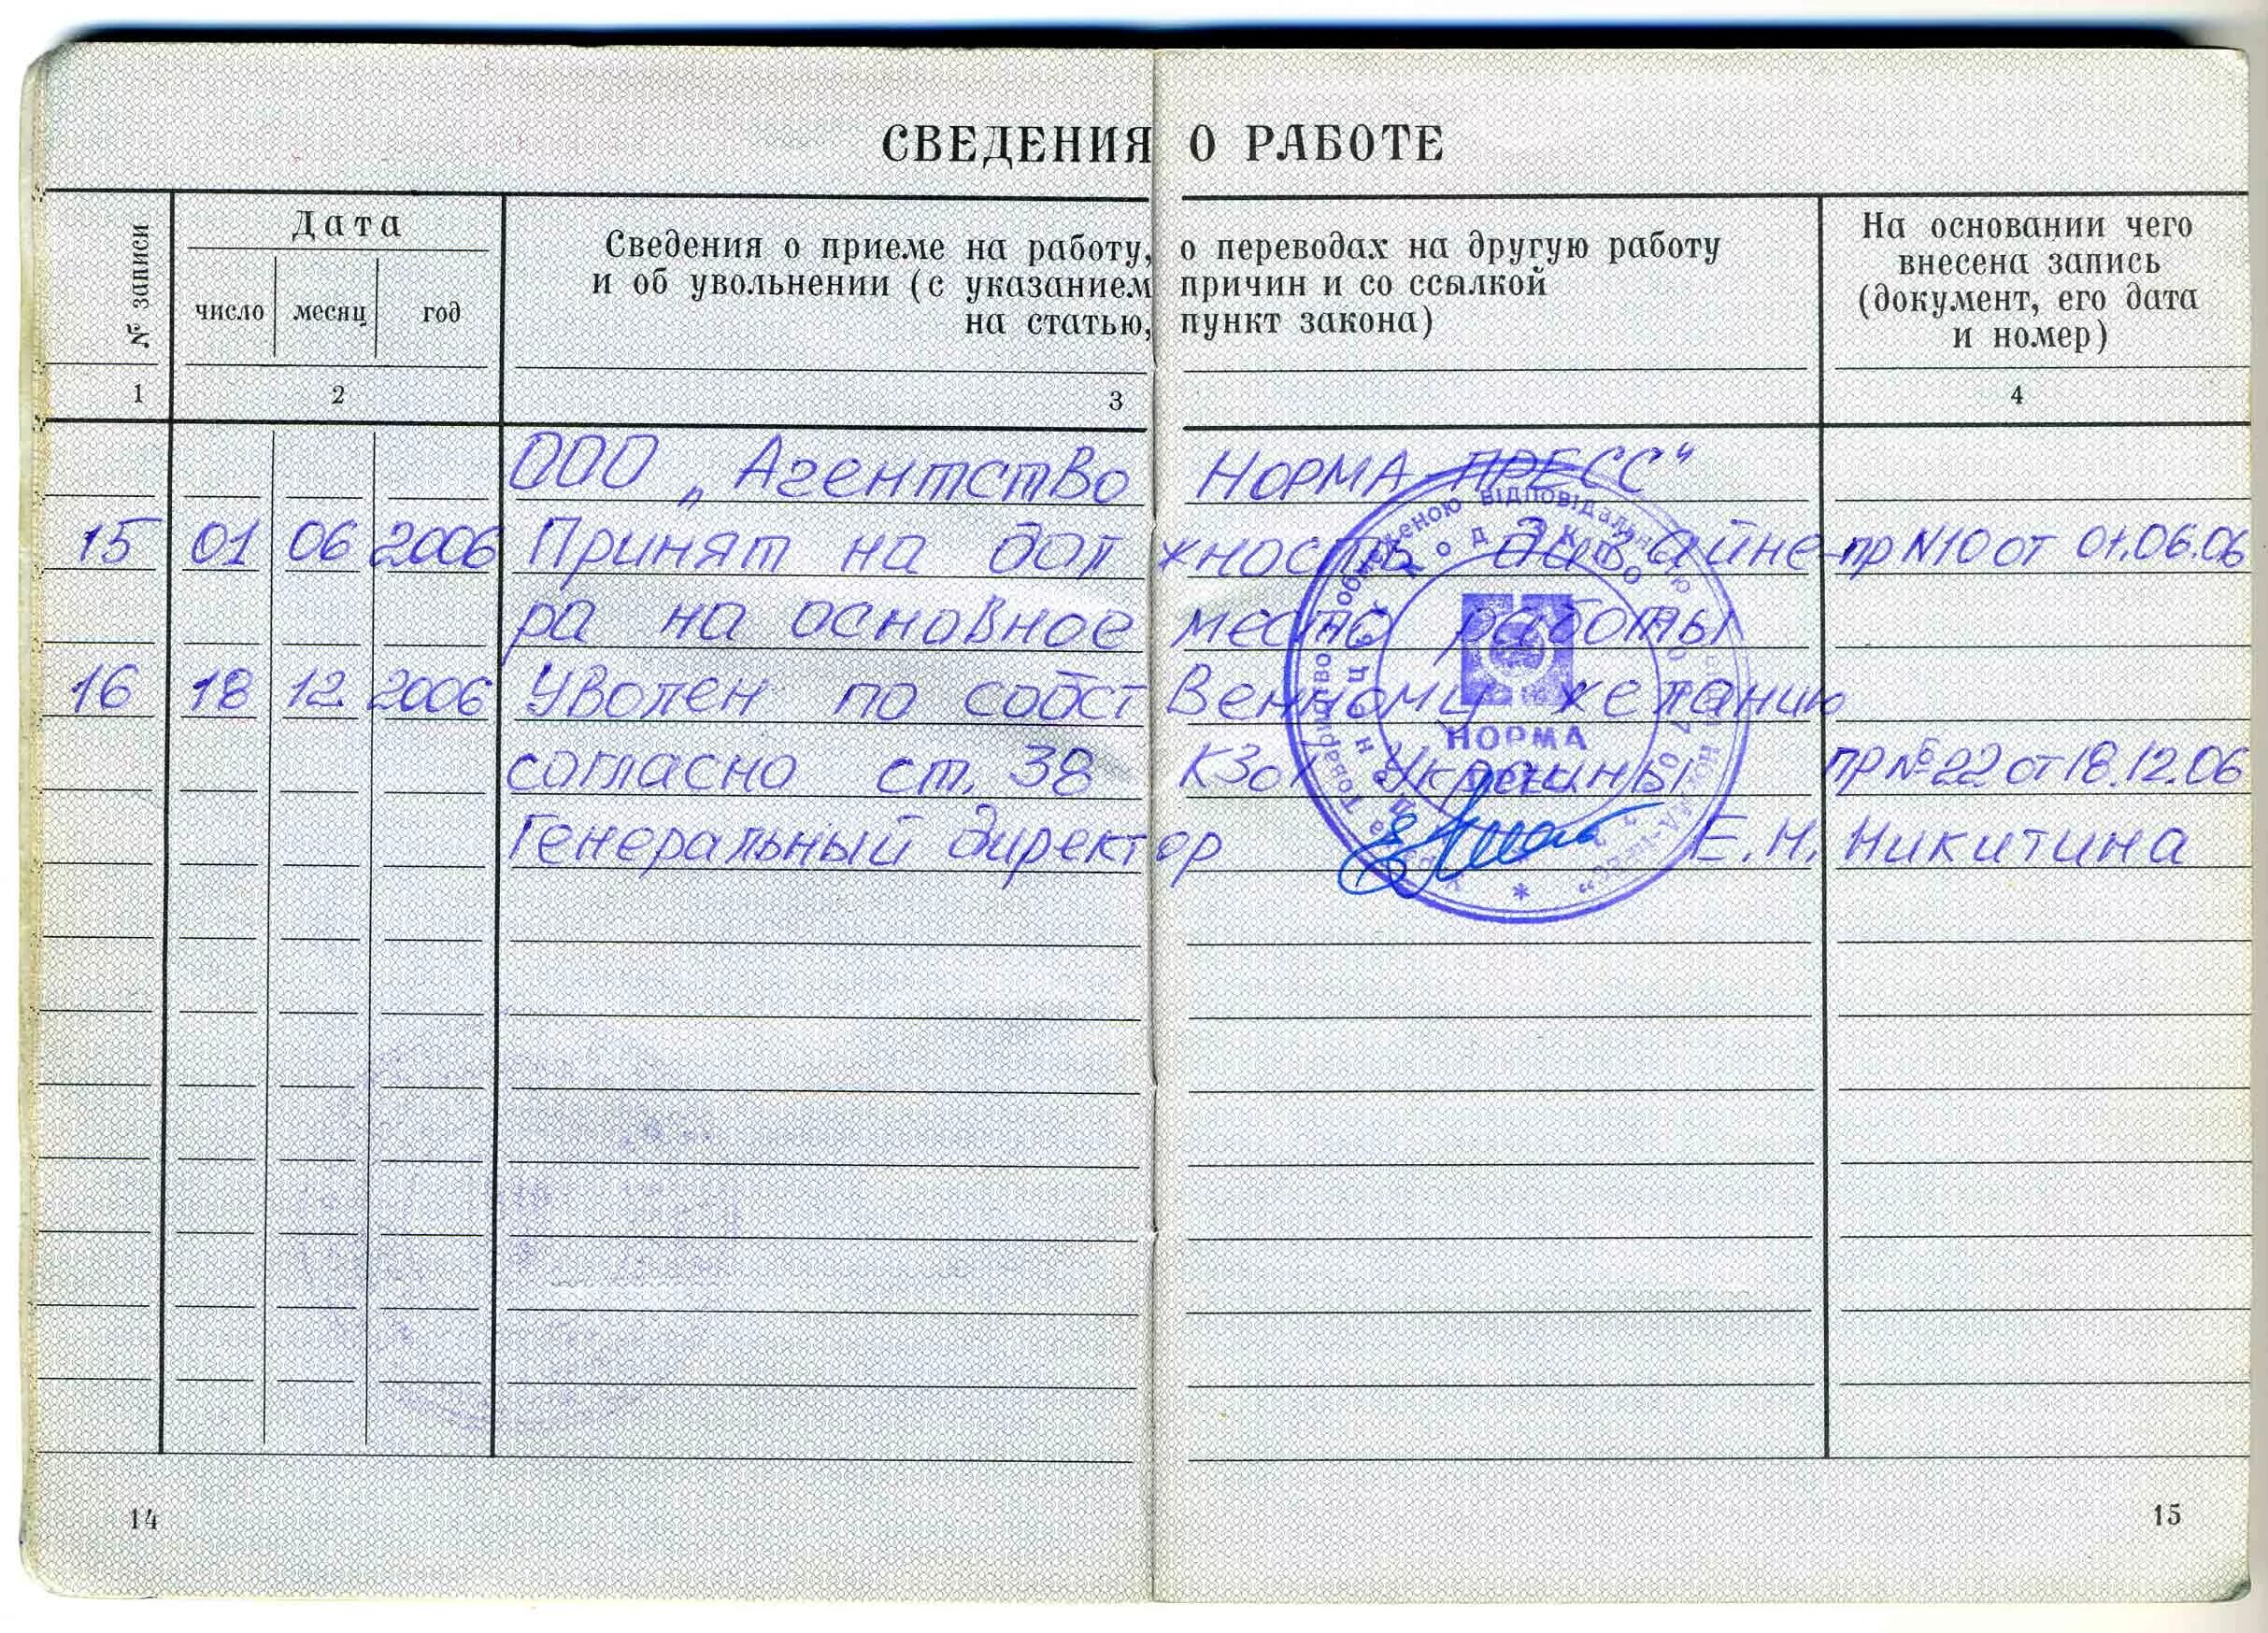 СВЕДЕНИЯ О РАБОТЕ
№ записи
Дата
число месяц год
Сведения о приеме на работу, о переводах на другую работу
и об увольнении (с указанием причин и со ссылкой
на статью, пункт закона)
На основании чего
внесена запись
(документ, его дата
и номер)
1 2 3 4
ООО „Агентство НОРМА ПРЕСС“
15 01 06 2006 Принят на должность дизайне- пр N10 от 01.06.06
ра на основное место работы
16 18 12 2006 Уволен по собственному желанию
согласно ст. 38 КЗоТ Украины пр № 22 от 18.12.06
Генеральный директор Е.Н. Никитина
обмеженою відповідальністю
Товариство з
Код ЗКПО
НОРМА
14
15